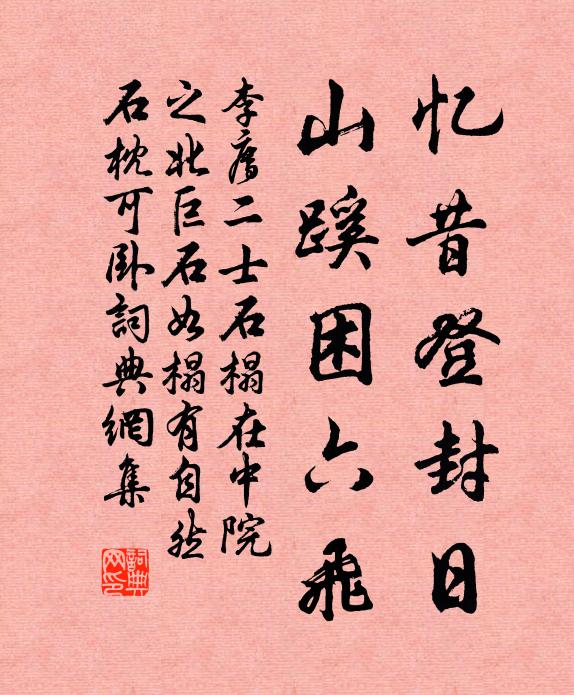 忆昔登封日
山蹊困六飞
李膺二士石榻在中院
之北巨石如榻有自然
石枕可卧詞典網集
詞典网印